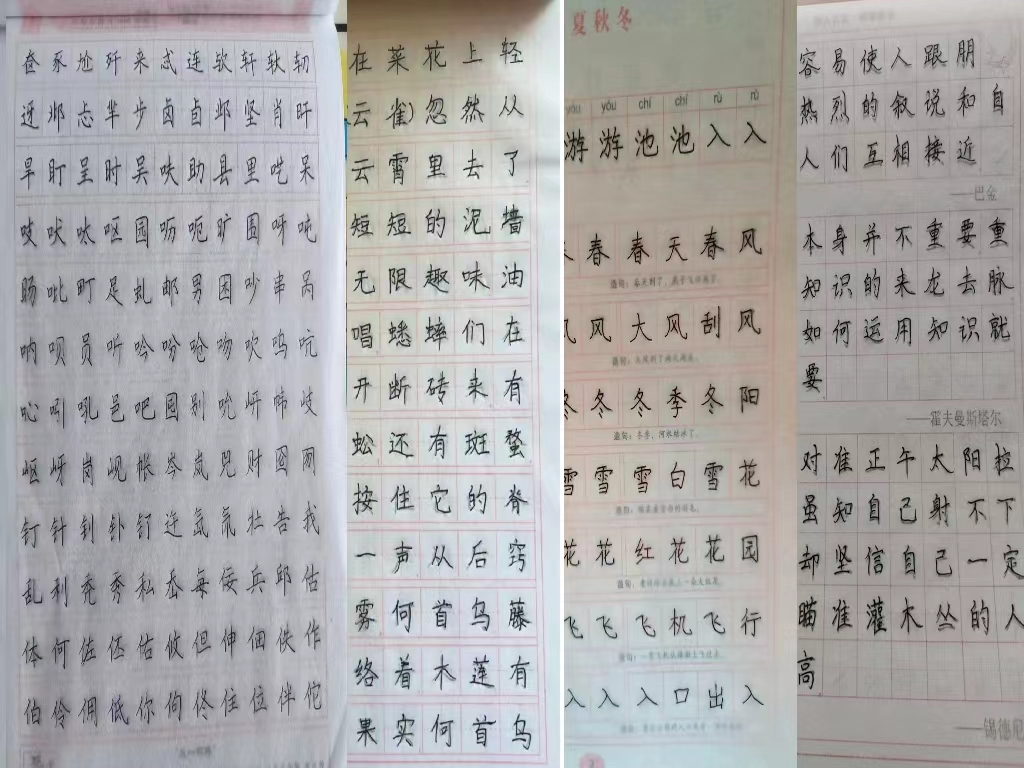 奋豕尬歼来忒连欤轩轪轫
迓邺忐芈步卤卣邺坚肖旰
旱盯呈时吴呋助县里呓呆
吱吠呔呕园呖呃旷围呀吨
旸吡町足虬邮男困吵串呙
呐呗员听吟吩呛吻吹呜吭
吣吲吼邑吧囤别吮岍帏岐
岖岈岗岘帐岑岚兕财囵囫
钉针钊钋钌迕氙氚牡告我
乱利秃秀私岙每佞兵邱估
体何佐伾佑攸但伸佃佚作
伯伶佣低你佝佟住位伴佗
在菜花上轻
云雀)忽然从
云霄里去了
短短的泥墙
无限趣味油
唱蟋蟀们在
开断砖来有
蜈还有斑蝥
按住它的脊
一声从后窍
雾何首乌藤
络着木莲有
果实何首乌
夏秋冬
yóu yóu chí chí rù rù
游游池池入入
春春天春风
造句：春天到了，燕子飞回来了。
风风大风刮风
冬冬冬季冬阳
造句：冬季，河水结冰了。
雪雪雪白雪花
花花红花花园
飞飞飞机飞行
入入入口出入
容易使人跟朋
热烈的叙说和自
人们互相接近
——巴金
本身并不重要重
知识的来龙去脉
如何运用知识就
要
——霍夫曼斯塔尔
对准正午太阳拉
虽知自己射不下
却坚信自己一定
瞄准灌木丛的人
高
——锡德尼